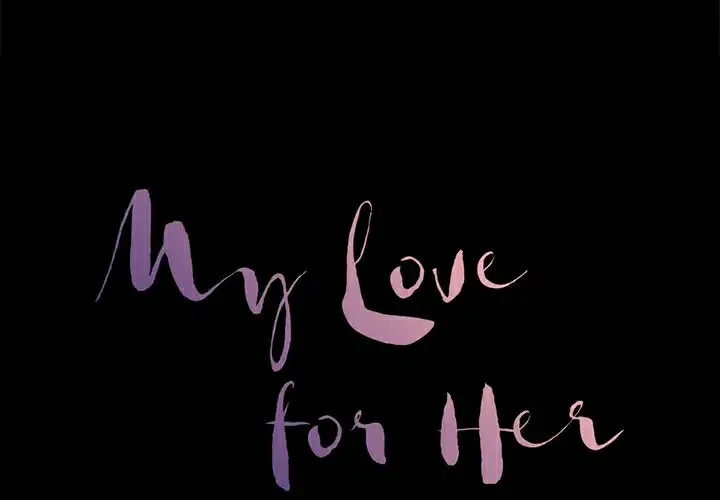 My Love
for Her